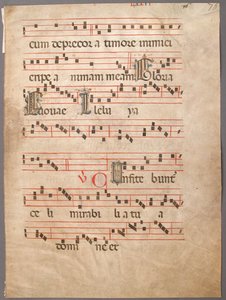 cum deprecor a timore inimici
eripe animam meam Gloria
Euouae Alelu ya
Confitebunt
celi mirabilia tua
domine et